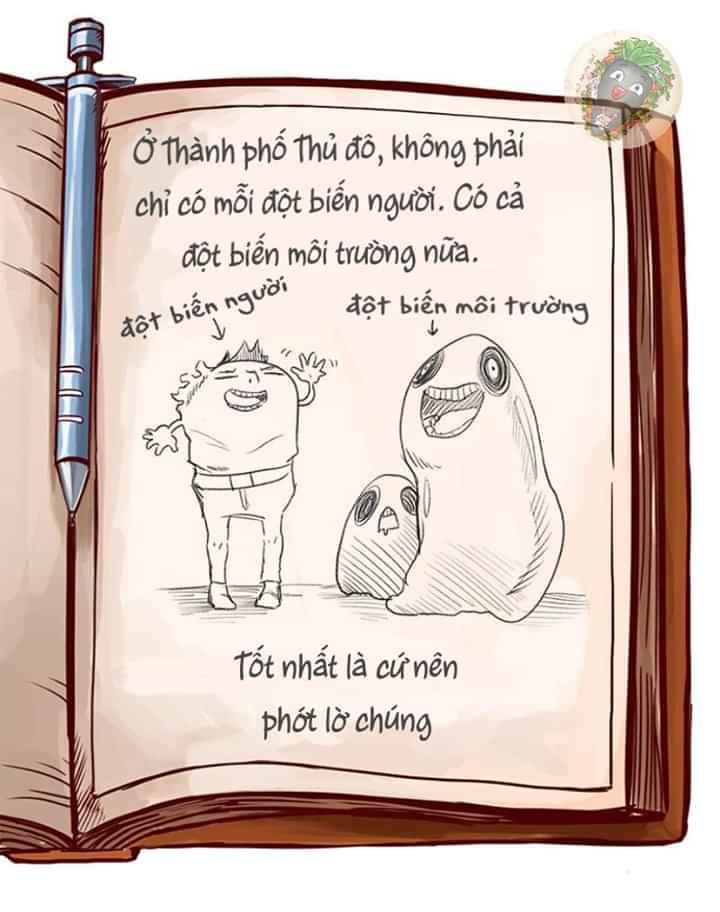 Ở Thành phố Thủ đô, không phải
chỉ có mỗi đột biến người. Có cả
đột biến môi trường nữa.
đột biến người
đột biến môi trường
Tốt nhất là cứ nên
phớt lờ chúng